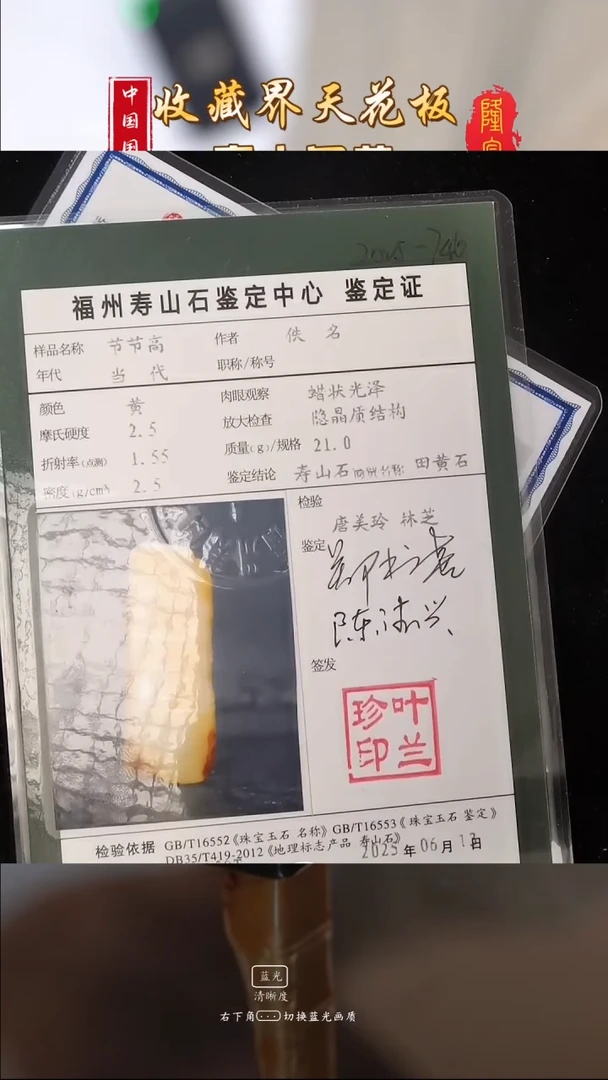 中国国
收藏界天花板
隆
2025-746
福州寿山石鉴定中心 鉴定证
样品名称 节节高 作者 佚名
年代 当代 职称/称号
颜色 黄 肉眼观察 蜡状光泽
摩氏硬度 2.5 放大检查 隐晶质结构
折射率(点测) 1.55 质量(g)/规格 21.0
密度(g/cm³) 2.5 鉴定结论 寿山石 商贸名称 田黄石
检验
唐美玲 林芝
鉴定
签发
叶兰珍印
检验依据 GB/T16552《珠宝玉石 名称》GB/T16553《珠宝玉石 鉴定》
DB35/T419-2012《地理标志产品 寿山石》
2025年06月12日
蓝光
清晰度
右下角 切换蓝光画质